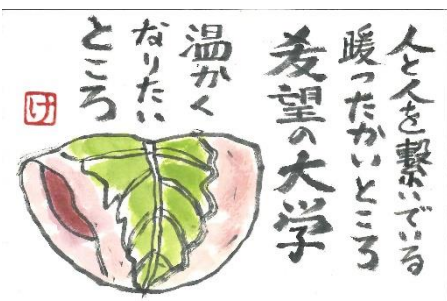 人と人を繋いでいる
暖ったかいところ
希望の大学
温かく
なりたい
ところ
け